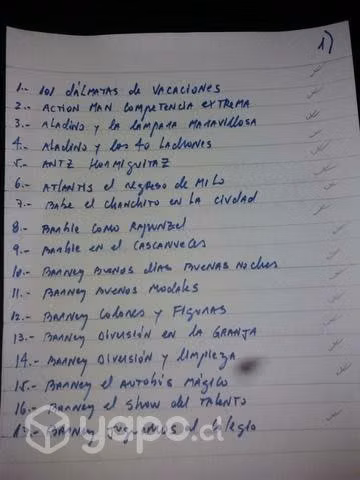 1)
1.- 101 dálmatas de vacaciones
2.- Action Man Competencia extrema
3.- Aladino y la lampara maravillosa
4.- Aladino y los 40 ladrones
5.- Antz Hormiguitaz
6.- Atlantis el regreso de Milo
7.- Babe el chanchito en la ciudad
8.- Barbie como Rapunzel
9.- Barbie en el cascanueces
10.- Barney Buenos dias Buenas noches
11.- Barney Buenos modales
12.- Barney Colores y Figuras
13.- Barney Diversión en la granja
14.- Barney Diversión y limpieza
15.- Barney el autobús mágico
16.- Barney el show del talento
17.- Barney al colegio
yapo.cl